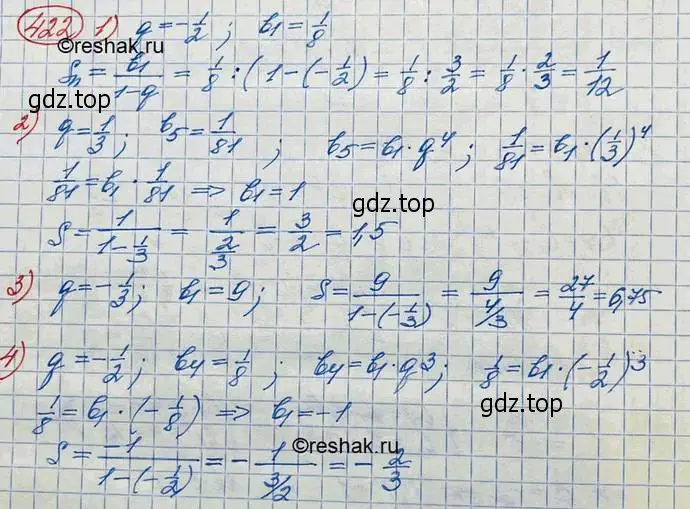 422 1) q = -1/2 ; b1 = 1/8
©reshak.ru
Sn = b1/(1-q) = 1/8 : (1-(-1/2) = 1/8 : 3/2 = 1/8 · 2/3 = 1/12
gdz.top
2) q = 1/3 ; b5 = 1/81 ; b5 = b1 · q^4 ; 1/81 = b1 · (1/3)^4
1/81 = b1 · 1/81 => b1 = 1
gdz.top
S = 1/(1-1/3) = 1/(2/3) = 3/2 = 1,5
3) q = -1/3 ; b1 = 9 ; S = 9/(1-(-1/3)) = 9/(4/3) = 27/4 = 6,75
gdz.top
4) q = -1/2 ; b4 = 1/8 ; b4 = b1 · q^3 ; 1/8 = b1 · (-1/2)^3
1/8 = b1 · (-1/8) => b1 = -1
gdz.top
©reshak.ru
S = -1/(1-(-1/2)) = - 1/(3/2) = - 2/3